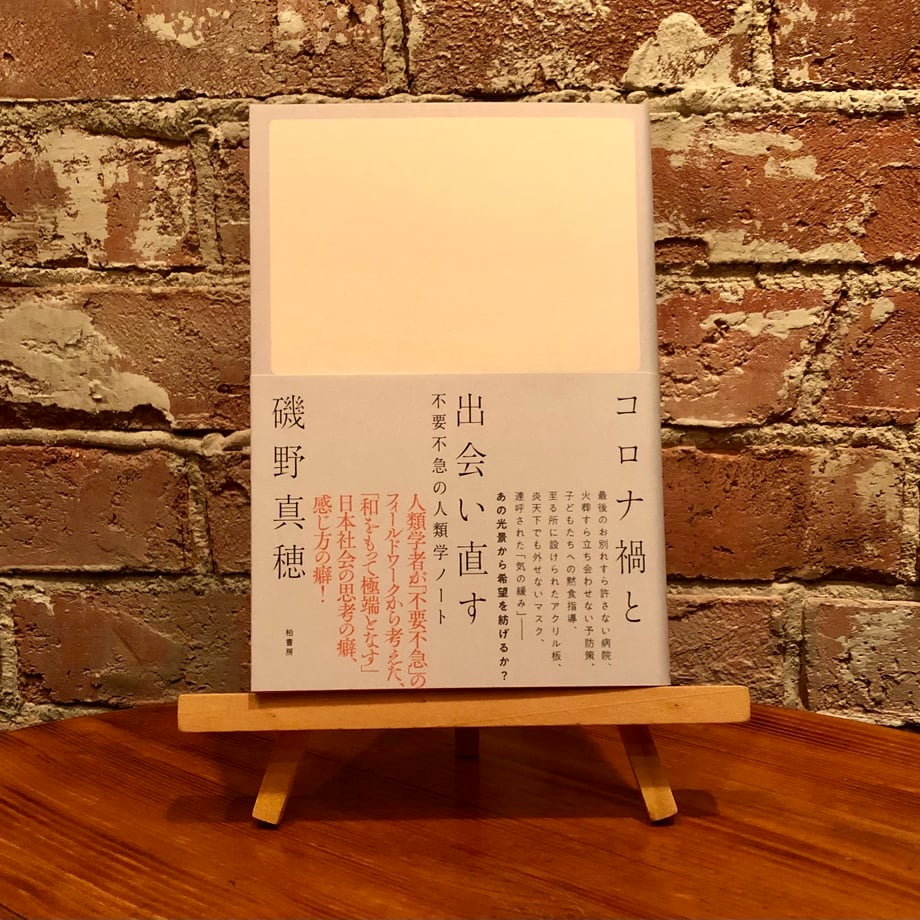 コロナ禍と
最後のお別れすら許さない病院、
火葬すら立ち会わせない予防策、
子どもたちへの黙食指導、
至る所に設けられたアクリル板、
炎天下でも外せないマスク、
連呼された「気の緩み」――
あの光景から希望を紡げるか？
出会い直す
不要不急の人類学ノート
人類学者が「不要不急」の
フィールドワークから考えた、
「和をもって極端となす」
日本社会の思考の癖、
感じ方の癖！
磯野真穂
柏書房